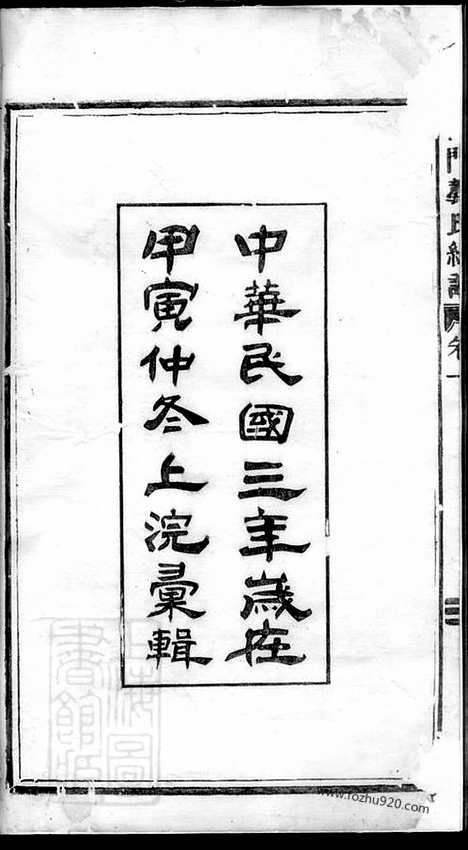 中華民國三年歲在
甲寅仲冬上浣彙輯
卷一
www.fozhu920.com